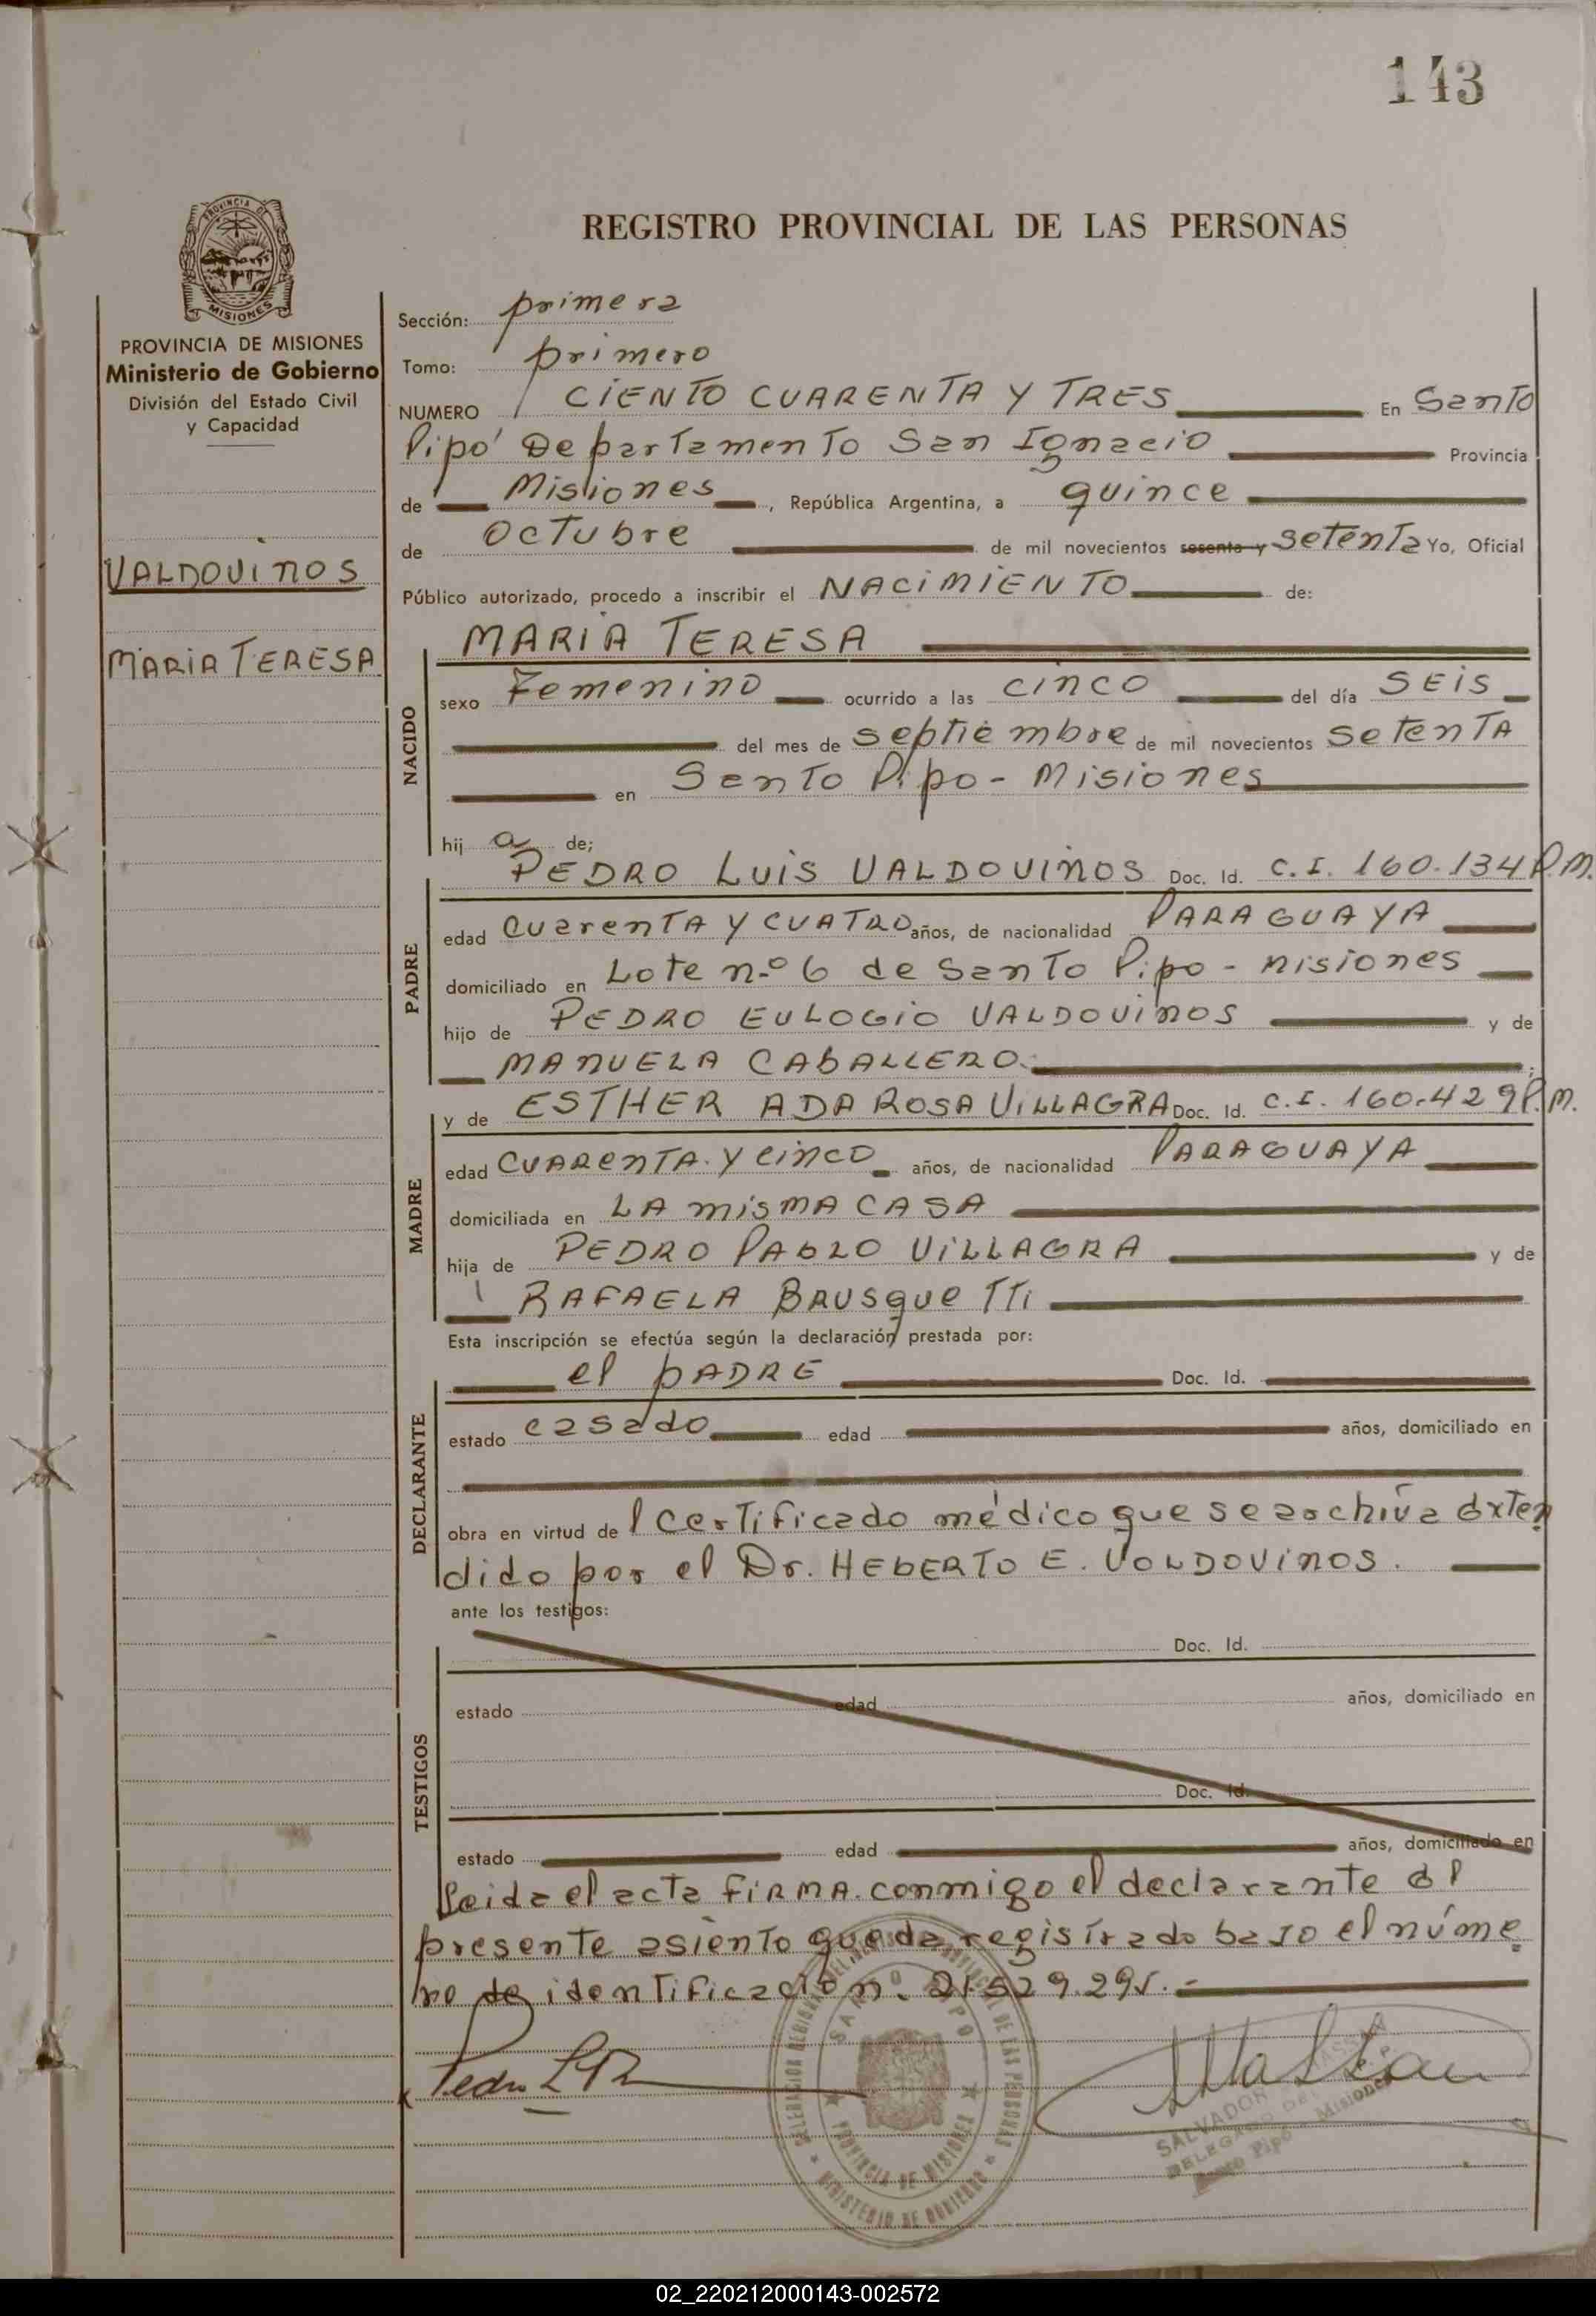 143
REGISTRO PROVINCIAL DE LAS PERSONAS
PROVINCIA DE
MISIONES
PROVINCIA DE MISIONES
Ministerio de Gobierno
División del Estado Civil
y Capacidad
VALDOVINOS
MARIA TERESA
Sección: primera
Tomo: primero
NUMERO CIENTO CUARENTA Y TRES En Santo
Pipó Departamento San Ignacio Provincia
de Misiones, República Argentina, a quince
de Octubre de mil novecientos sesenta y setenta Yo, Oficial
Público autorizado, procedo a inscribir el NACIMIENTO de:
MARIA TERESA
NACIDO
sexo Femenino ocurrido a las cinco del día SEIS
del mes de septiembre de mil novecientos setenta
en Santo Pipo - Misiones
hij a de;
PEDRO LUIS VALDOVINOS Doc. Id. C.I. 160.134 P.M.
PADRE
edad cuarenta y cuatro años, de nacionalidad PARAGUAYA
domiciliado en Lote n.º 6 de Santo Pipo - misiones
hijo de PEDRO EULOGIO VALDOVINOS y de
MANUELA CABALLERO.
y de ESTHER ADA ROSA VILLAGRA Doc. Id. C.I. 160.429 P.M.
MADRE
edad CUARENTA Y CINCO años, de nacionalidad PARAGUAYA
domiciliada en LA misma CASA
hija de PEDRO PABLO VILLAGRA y de
RAFAELA BRUSqueTTi
Esta inscripción se efectúa según la declaración prestada por:
el PADRE Doc. Id.
DECLARANTE
estado casado edad años, domiciliado en
obra en virtud de l certificado médico que se archiva exten
dido por el Dr. HEBERTO E. VOLDOVINOS.
ante los testigos:
Doc. Id.
estado edad años, domiciliado en
TESTIGOS
Doc. Id.
estado edad años, domiciliado en
Leida el acta FIRMA conmigo el declarante el
presente asiento queda registrado bajo el núme
ro de identificación n. 21.529.295.-
DELEGACION REGISTRO PROVINCIAL DE LAS PERSONAS
SANTO PIPO
PROVINCIA DE MISIONES
MINISTERIO DE GOBIERNO
SALVADOR
DELEGADO
Santo Pipó - Misiones
02_220212000143-002572